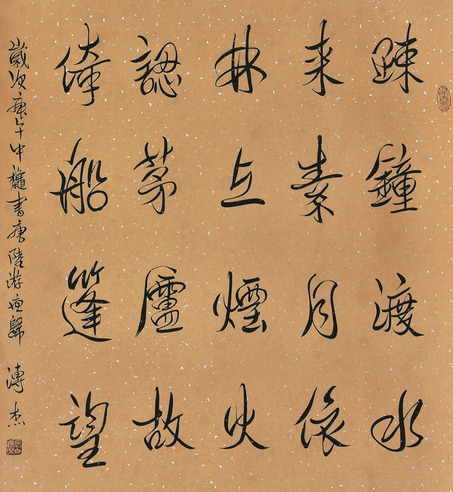 踈鐘渡水
来素月依
林上煙火
認茅廬故
倚船篷望
歲次庚午中龝書唐陸游夜歸
溥杰